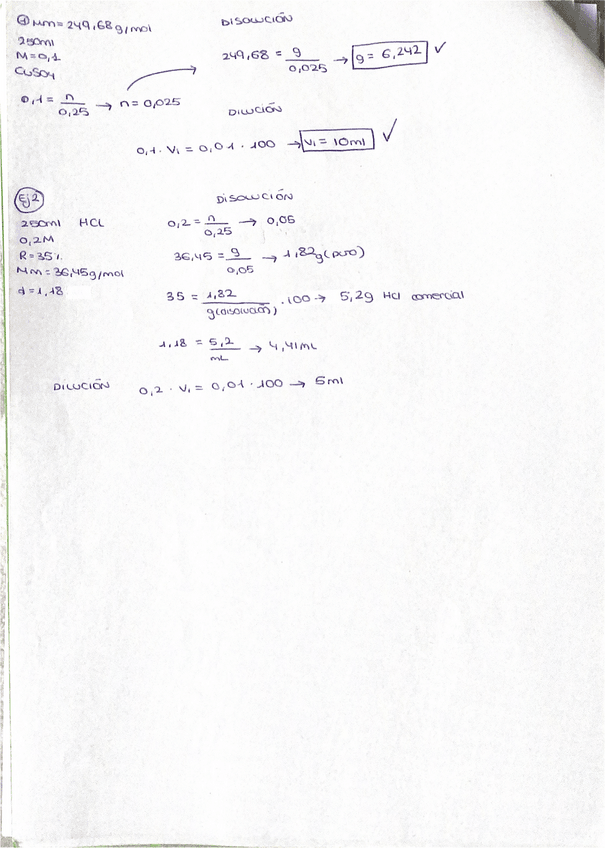 ① Mm= 249,68 g/mol
250ml
M=0,1
CuSO4
0,1 = n/0,25 → n=0,025
DISOLUCIÓN
249,68 = g/0,025 → g= 6,242 ✓
DILUCIÓN
0,1 · V1 = 0,01 · 100 → V1 = 10ml ✓
Ej2
250ml HCL
0,2M
R=35%
Mm=36,45g/mol
d=1,18
DISOLUCIÓN
0,2 = n/0,25 → 0,05
36,45 = g/0,05 → 1,82g (puro)
35 = 1,82/g(disolución) · 100 → 5,2g HCl comercial
1,18 = 5,2/mL → 4,41mL
DILUCIÓN 0,2 · V1 = 0,01 · 100 → 5ml